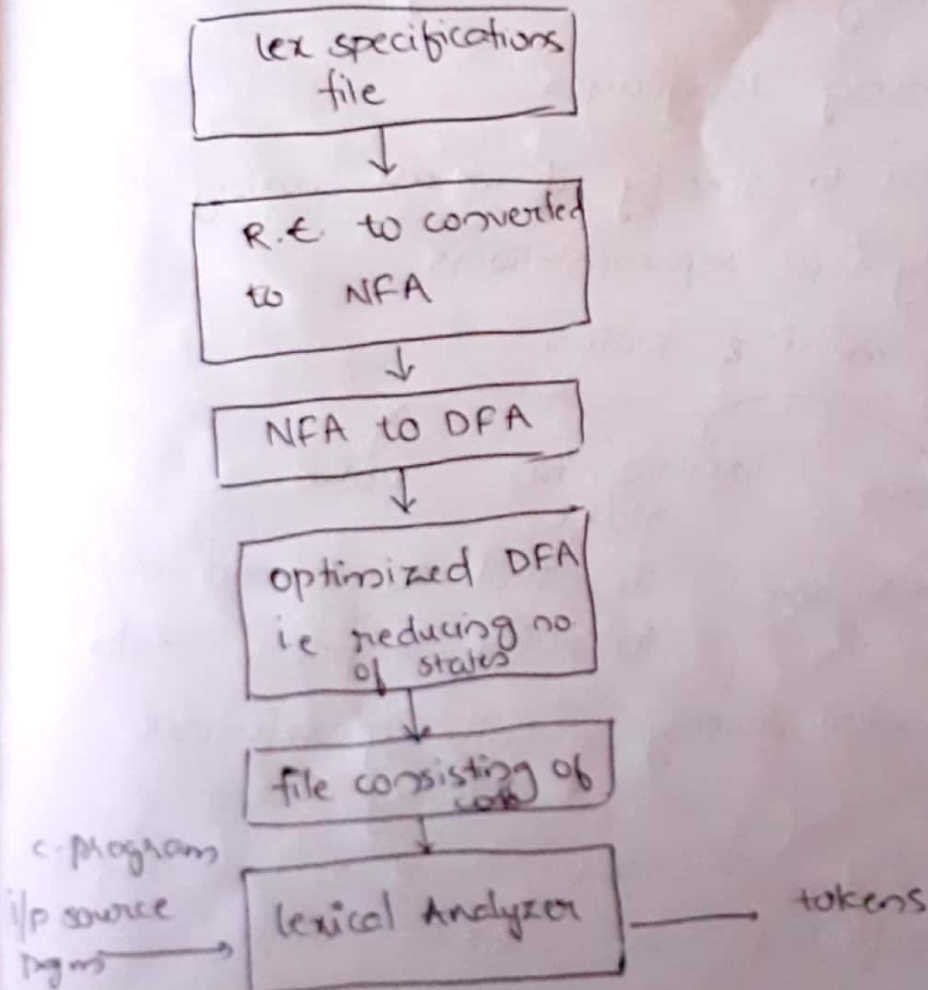 lex specifications
file
R.E. to converted
to NFA
NFA to DFA
optimized DFA
i.e reducing no
of states
file consisting of
c-program
i/p source
pgm
lexical Analyzer
tokens